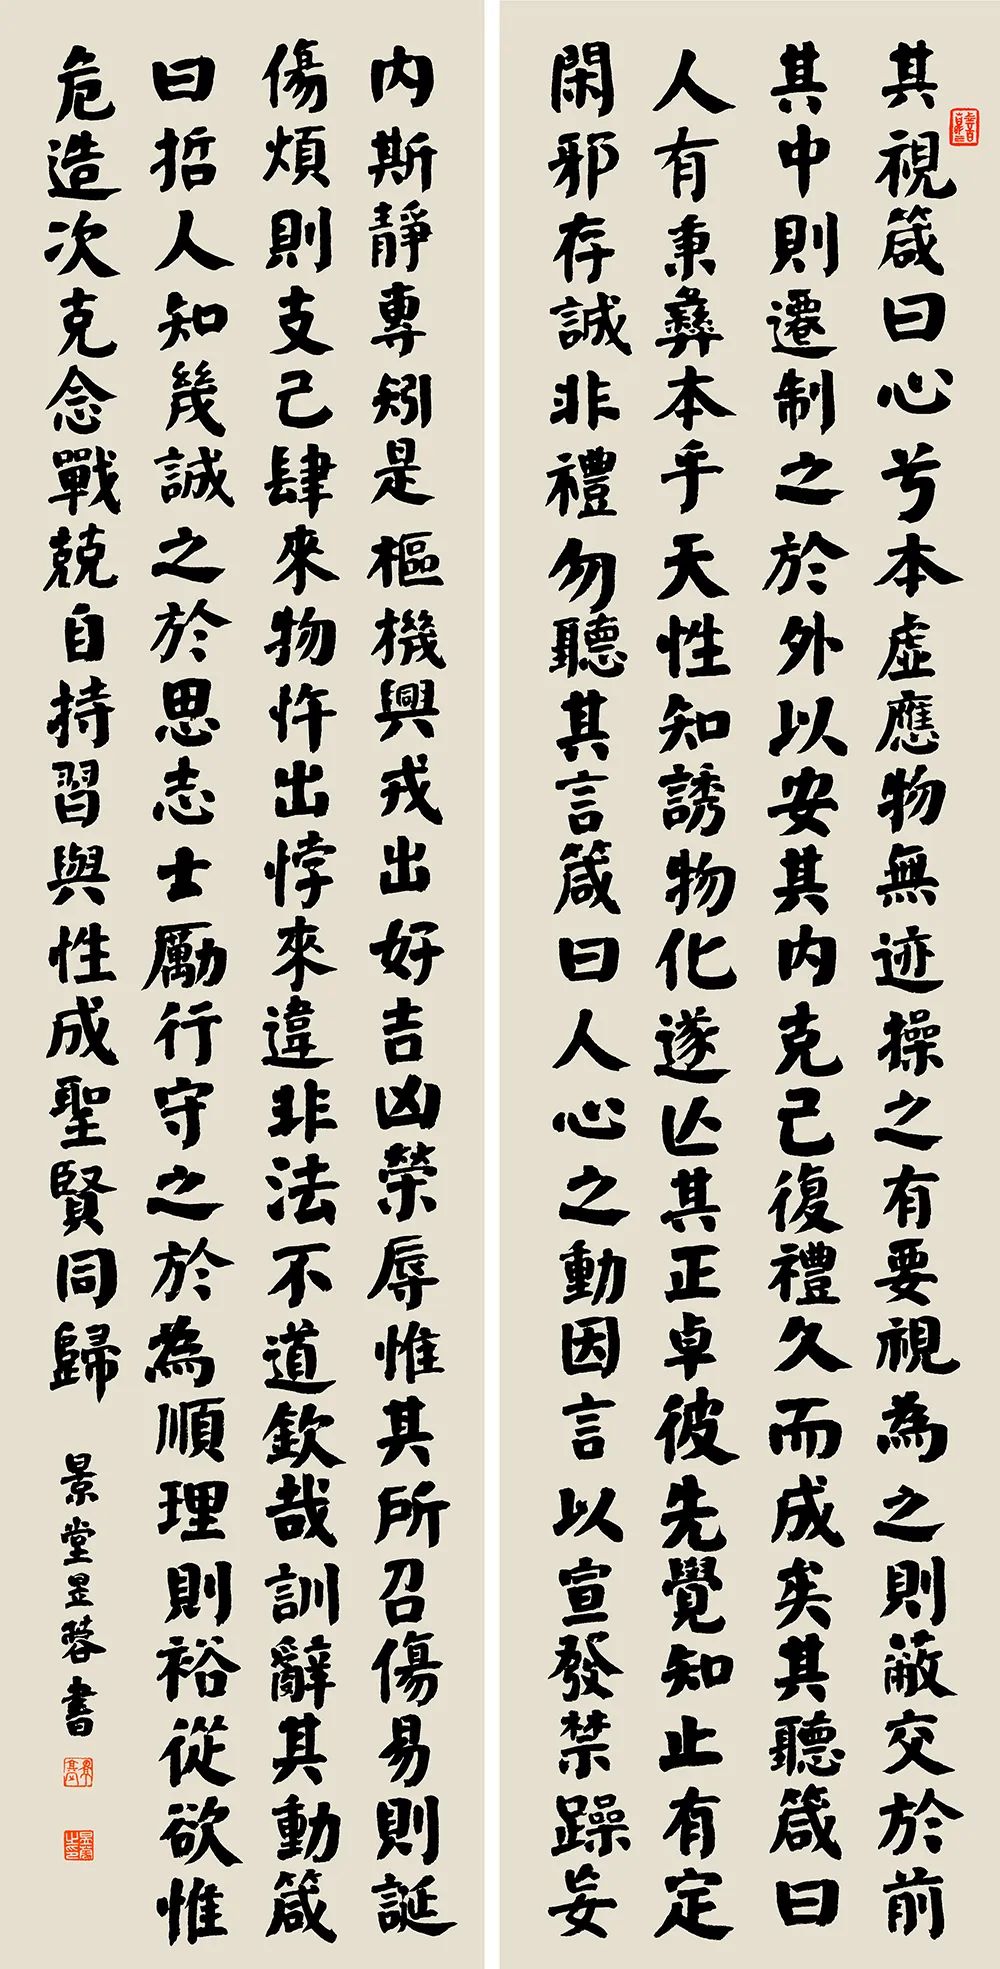 其視箴曰心兮本虛應物無迹操之有要視為之則蔽交於前
其中則遷制之於外以安其内克己復禮久而成矣其聽箴曰
人有秉彝本乎天性知誘物化遂亡其正卓彼先覺知止有定
閑邪存誠非禮勿聽其言箴曰人心之動因言以宣發禁躁妄
内斯靜專矧是樞機興戎出好吉凶榮辱惟其所召傷易則誕
傷煩則支己肆來物忤出悖來違非法不道欽哉訓辭其動箴
曰哲人知幾誠之於思志士勵行守之於為順理則裕從欲惟
危造次克念戰兢自持習與性成聖賢同歸
景堂昱蓉書